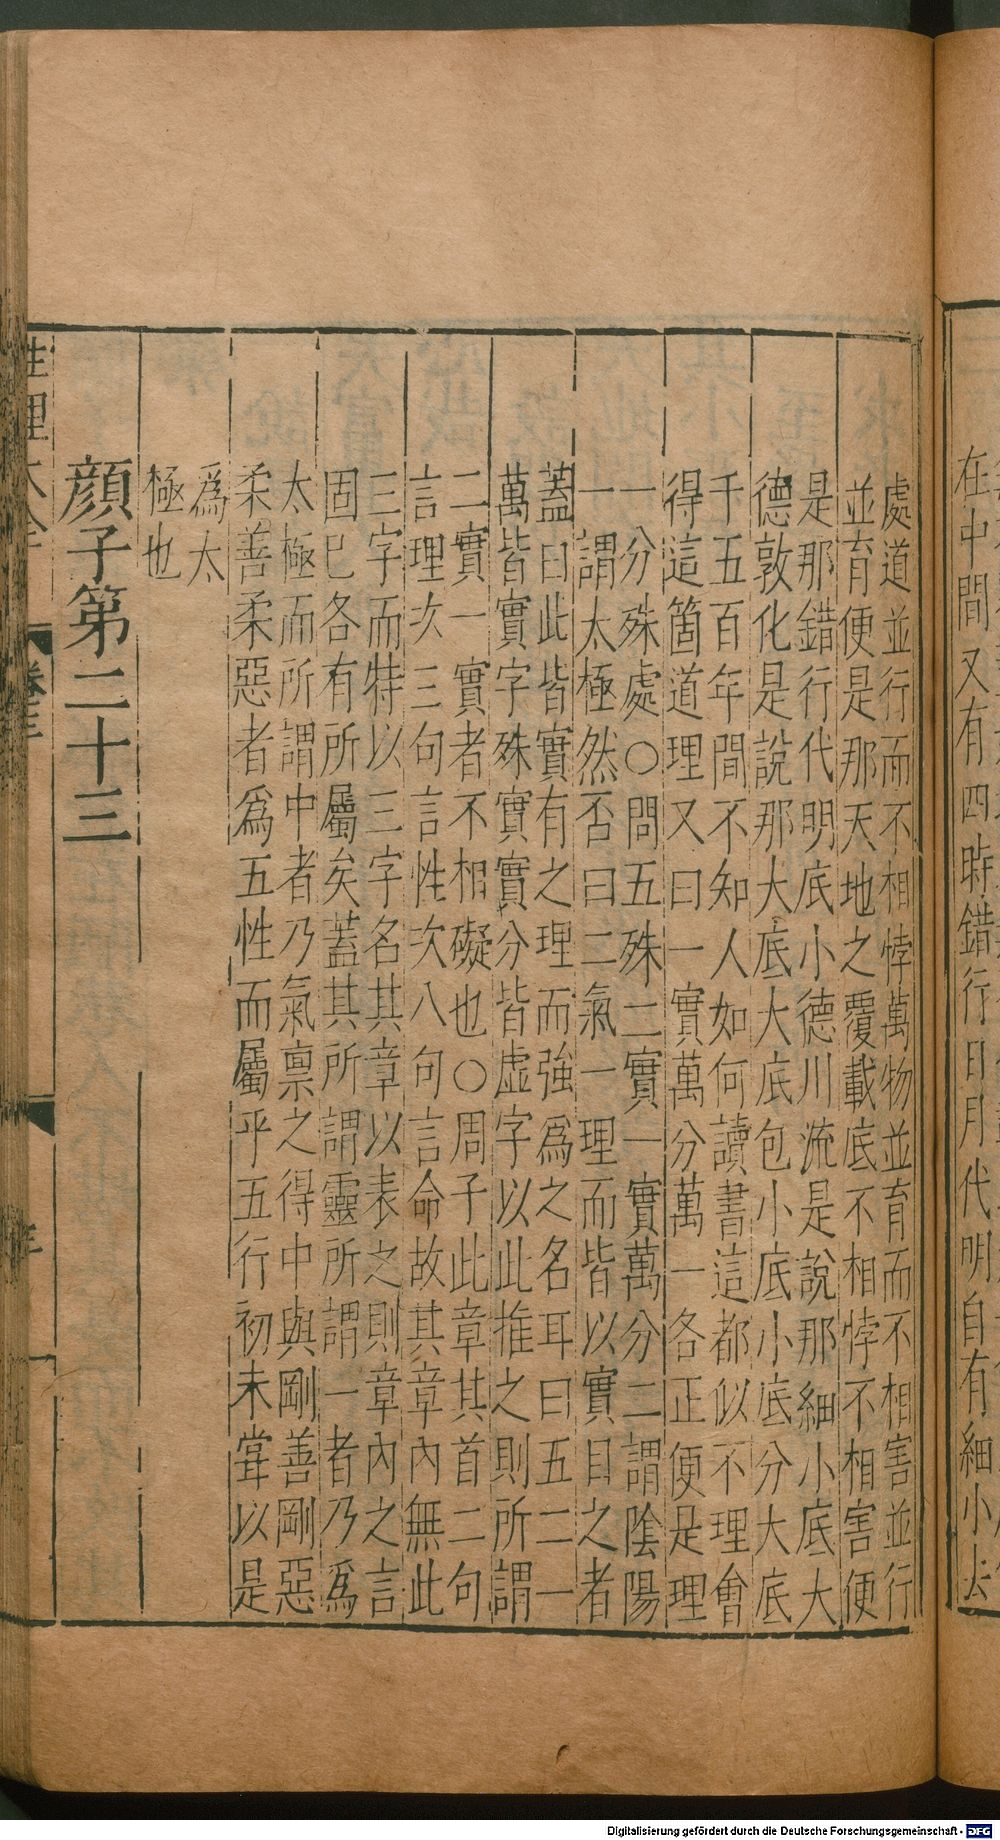 處道並行而不相悖萬物並育而不相害並行
並育便是那天地之覆載底不相悖不相害便
是那錯行代明底小德川流是說那細小底大
德敦化是說那大底大底包小底小底分大底
千五百年間不知人如何讀書這都似不理會
得這箇道理又曰一實萬分萬一各正便是理
一分殊處○問五殊二實一實萬分二謂陰陽
一謂太極然否曰二氣一理而皆以實目之者
蓋曰此皆實有之理而強爲之名耳曰五二一
萬皆實字殊實實分皆虛字以此推之則所謂
二實一實者不相礙也○周子此章其首二句
言理次三句言性次八句言命故其章內無此
三字而特以三字名其章以表之則章內之言
固巳各有所屬矣蓋其所謂靈所謂一者乃爲
太極而所謂中者乃氣禀之得中與剛善剛惡
柔善柔惡者爲五性而屬乎五行初未甞以是
爲太
極也
顔子第二十三
性理大全
在中間又有四時錯行日月代明自有細小去
Digitalisierung gefördert durch die Deutsche Forschungsgemeinschaft - DFG